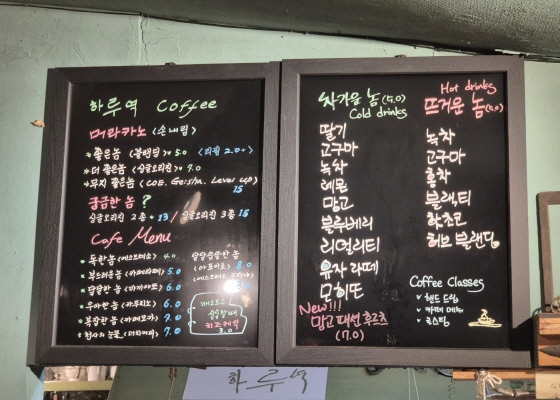 하루역 Coffee
머라카노 (손내림)
* 좋은놈 (블랜딩) 5.0 (리필 2.0+)
* 더 좋은놈 (싱글오리진) 7.0
* 무지 좋은놈 (COE. Geisha. Level up) 15
궁금한 놈?
싱글오리진 2종 13 / 싱글오리진 3종 15
Cafe Menu
* 독한놈 (에스프레소) 4.0
* 부드러운놈 (카페라떼) 5.0
* 달달한 놈 (마끼아또) 6.0
* 우아한 놈 (카푸치노) 6.0
* 복잡한 놈 (카페모카) 7.0
* 천사의 눈물 (더치커피) 7.0
달달씁쓸한 놈
(아포가토) 8.0
배고프고
심심할때
치즈케익
3.0
싸가운 놈 (5.0)
Cold drinks
딸기
고구마
녹차
레몬
망고
블루베리
리얼리티
유자 라떼
모히또
New!!!
망고 패션 후르츠
(7.0)
Hot drinks
뜨거운 놈 (5.0)
녹차
고구마
홍차
블랙티
핫초코
허브 블랜딩
Coffee Classes
✓ 핸드 드립
✓ 카페 메뉴
✓ 로스팅
하루역